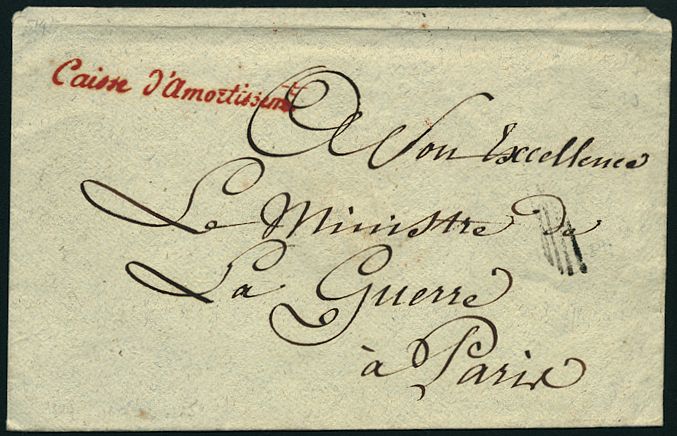 Caisse d'Amortissemt
A Son Excellence
Le Ministre de
La Guerre
à Paris